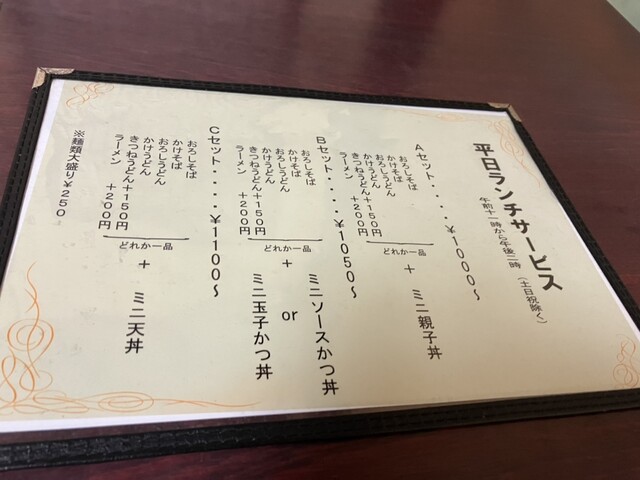 平日ランチサービス
午前十一時から午後二時 (土日祝除く)
Aセット・・・・¥1000〜
おろしそば
かけそば
おろしうどん
かけうどん
きつねうどん+150円
ラーメン +200円
どれか一品
+
ミニ親子丼
Bセット・・・・¥1050〜
おろしそば
かけそば
おろしうどん
かけうどん
きつねうどん+150円
ラーメン +200円
どれか一品
+
ミニソースかつ丼
or
ミニ玉子かつ丼
Cセット・・・・¥1100〜
おろしそば
かけそば
おろしうどん
かけうどん
きつねうどん+150円
ラーメン +200円
どれか一品
+
ミニ天丼
※麺類大盛り¥250